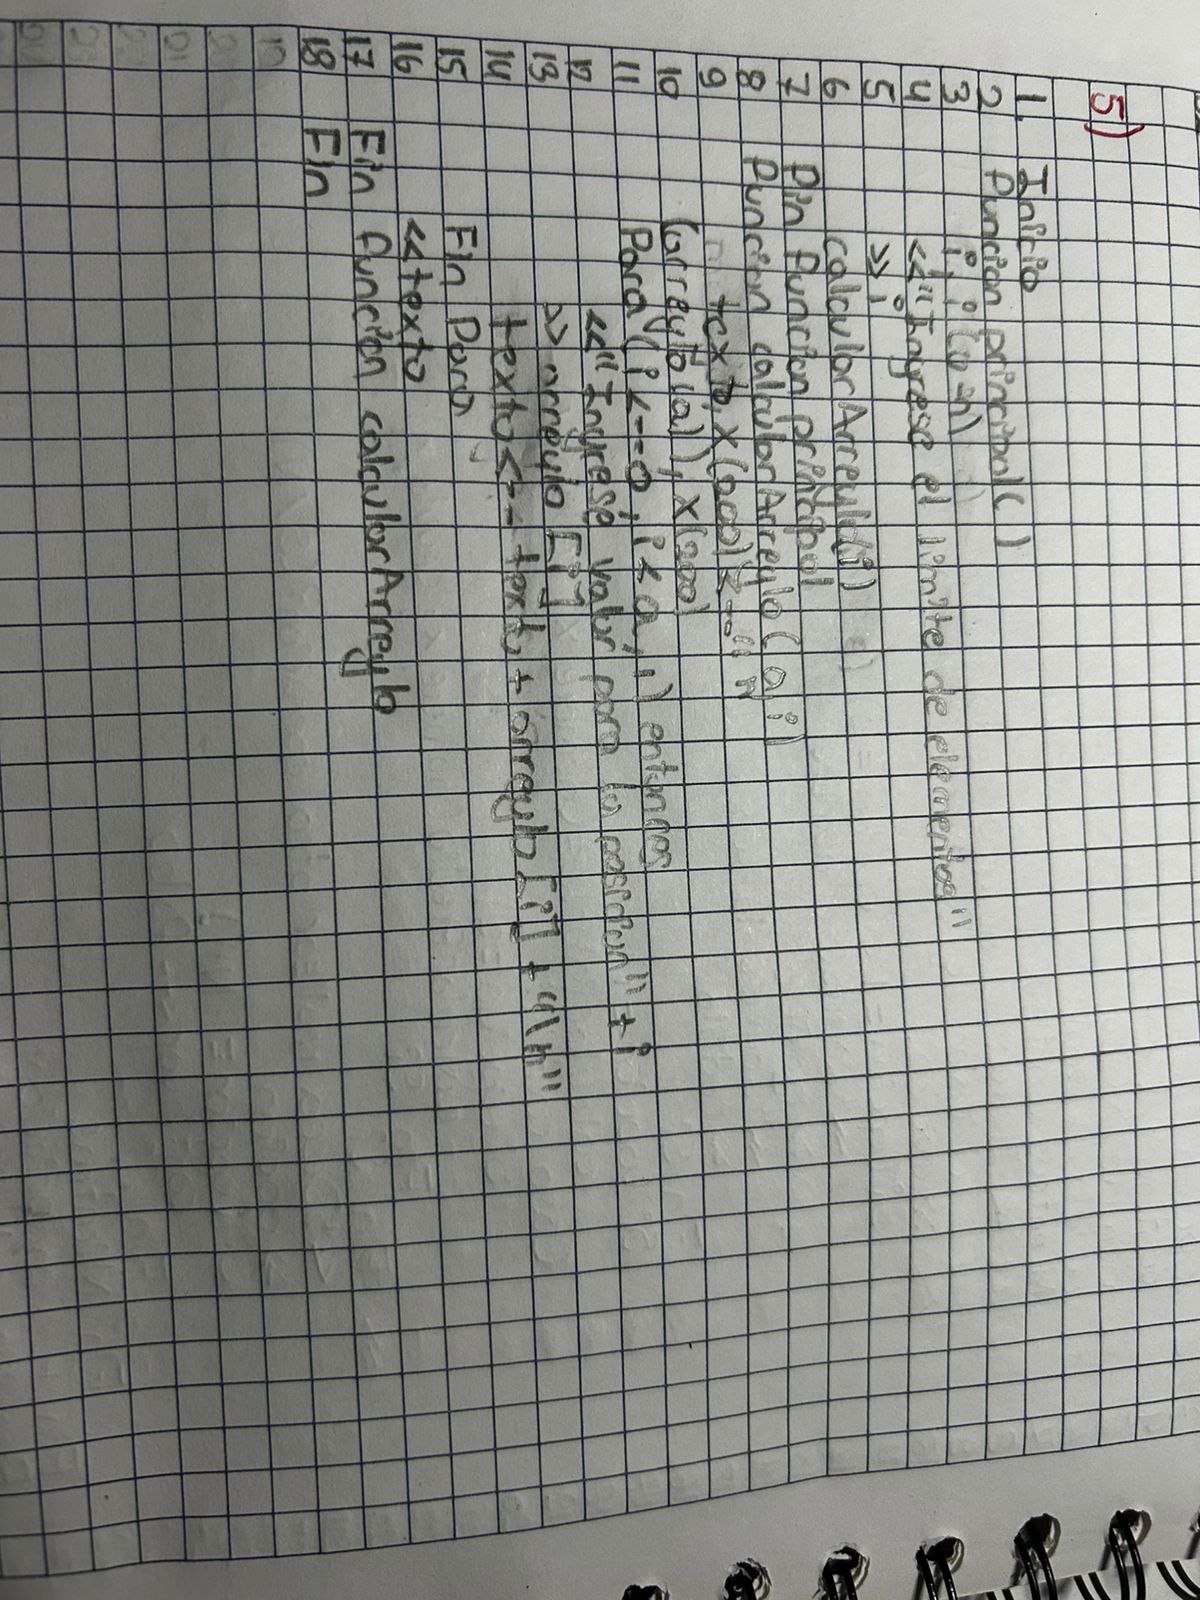 5)
1. Inicio
2 Función principal()
3 i; (o-n)
4 <<"Ingrese el límite de elementos"
5 >> i
6 calculorArreylo(i)
7 Fin Función principal
8 Función calculorArreylo(a;i)
9 texto, X(200) <--" "
10 (arreylo(a)), X(200)
11 Para (i<--0; i<a; 1) entonces
12 <<"Ingrese valor para la posición"+i
13 >> arreylo[i]
14 texto <-- texto + arreylo[i] + "\n"
15 Fin Para
16 <<texto
17 Fin Función calculorArreylo
18 Fin